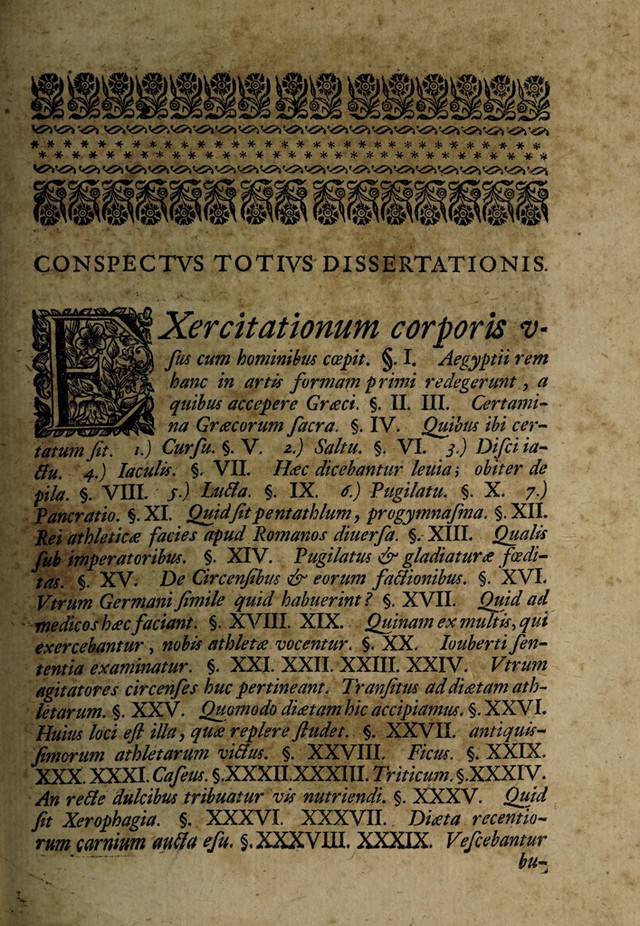 CONSPECTVS TOTIVS DISSERTATIONIS.
EXercitationum corporis v-
ſus cum hominibus cœpit. §. I. Aegyptii rem
hanc in artis formam primi redegerunt, a
quibus accepere Græci. §. II. III. Certami-
na Græcorum ſacra. §. IV. Quibus ibi cer-
tatum ſit. 1.) Curſu. §. V. 2.) Saltu. §. VI. 3.) Diſci ia-
ctu. 4.) Iaculis. §. VII. Hæc dicebantur leuia; obiter de
pila. §. VIII. 5.) Lucta. §. IX. 6.) Pugilatu. §. X. 7.)
Pancratio. §. XI. Quid ſit pentathlum, progymnaſma. §. XII.
Rei athleticæ facies apud Romanos diuerſa. §. XIII. Qualis
ſub imperatoribus. §. XIV. Pugilatus & gladiaturæ fœdi-
tas. §. XV. De Circenſibus & eorum factionibus. §. XVI.
Vtrum Germani ſimile quid habuerint? §. XVII. Quid ad
medicos hæc faciant. §. XVIII. XIX. Quinam ex multis, qui
exercebantur, nobis athletæ vocentur. §. XX. Iouberti ſen-
tentia examinatur. §. XXI. XXII. XXIII. XXIV. Vtrum
agitatores circenſes huc pertineant. Tranſitus ad diætam ath-
letarum. §. XXV. Quomodo diætam hic accipiamus. §. XXVI.
Huius loci eſt illa, quæ replere ſtudet. §. XXVII. antiquis-
ſimorum athletarum victus. §. XXVIII. Ficus. §. XXIX.
XXX. XXXI. Caſeus. §. XXXII. XXXIII. Triticum. §. XXXIV.
An recte dulcibus tribuatur vis nutriendi. §. XXXV. Quid
ſit Xerophagia. §. XXXVI. XXXVII. Diæta recentio-
rum carnium aucta eſu. §. XXXVIII. XXXIX. Veſcebantur
bu-